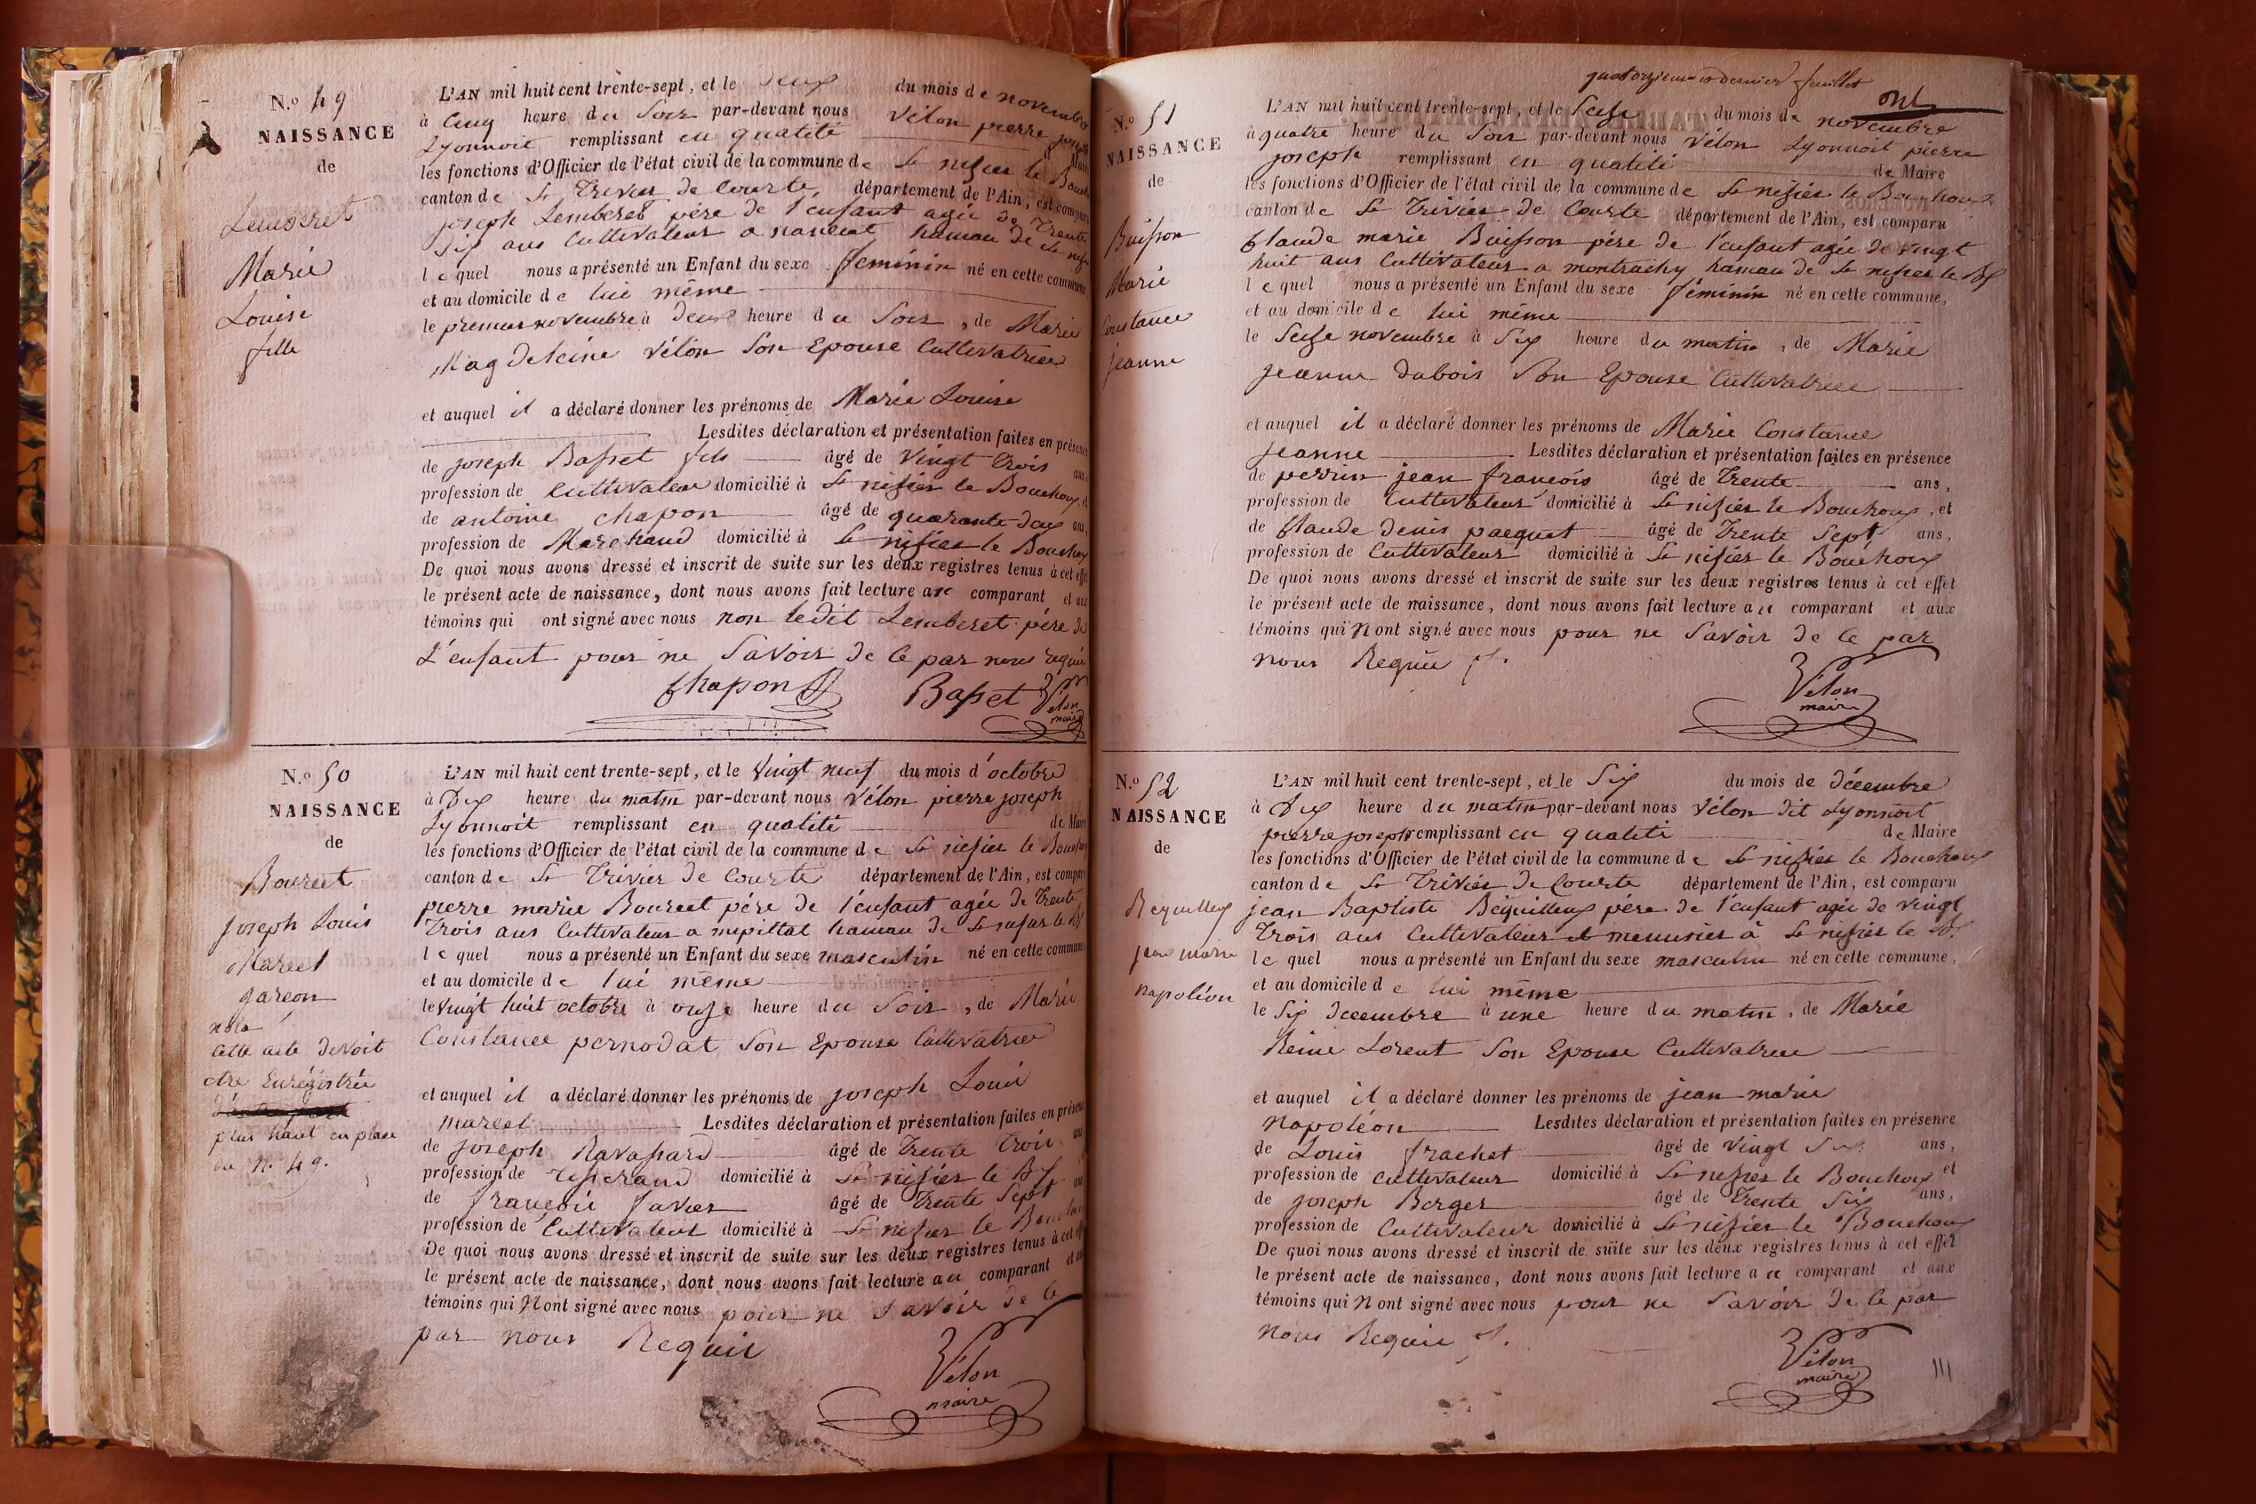 N.o 49
NAISSANCE
de
Lemberet
Marie
Louise
fille
L'AN mil huit cent trente-sept, et le deux du mois de novembre
à Cinq heure du Soir par-devant nous Vélon pierre joseph
Lyonnoit remplissant en qualité de Maire
les fonctions d'Officier de l'état civil de la commune de St nisier le Bouchoux
canton de St Trivier de Courte, département de l'Ain, est comparu
joseph Lemberet pére de l'enfant agée de Trente
Six ans Cultivateur a hameau de St nisier
lequel nous a présenté un Enfant du sexe feminin né en cette commune
et au domicile de lui même
le premier novembre à deux heure du Soir, de Marie
Magdeleine Vélon Son Epouse Cultivatrice
et auquel il a déclaré donner les prénoms de Marie Louise
Lesdites déclaration et présentation faites en présence
de joseph Basset fils âgé de Vingt Trois ans
profession de Cultivateur domicilié à St nisier le Bouchoux, et
de antoine chapon âgé de quarante deux ans,
profession de Marchand domicilié à St nisier le Bouchoux
De quoi nous avons dressé et inscrit de suite sur les deux registres tenus à cet effet
le présent acte de naissance, dont nous avons fait lecture au comparant et aux
témoins qui ont signé avec nous non ledit Lemberet pére de
L'enfant pour ne Savoir de ce par nous requis
Chapon Basset Vélon
maire
N.o 50
NAISSANCE
de
Bourcet
joseph Louis
Marcel
garcon
nota
cette acte devoit
etre Enrégistrée
plus haut en place
du N.o 49.
L'AN mil huit cent trente-sept, et le Vingt neuf du mois d'octobre
à Dix heure du matin par-devant nous Vélon pierre joseph
Lyonnoit remplissant en qualité de Maire
les fonctions d'Officier de l'état civil de la commune de St nisier le Bouchoux
canton de St Trivier de Courte département de l'Ain, est comparu
pierre marie Bourcet pére de l'enfant agée de Trente
Trois ans Cultivateur a mipillat hameau de St nisier le Bx
lequel nous a présenté un Enfant du sexe masculin né en cette commune
et au domicile de lui même
le Vingt huit octobre à onze heure du Soir, de Marie
Constance pernodat Son Epouse Cultivatrice
et auquel il a déclaré donner les prénoms de joseph Louis
marcel Lesdites déclaration et présentation faites en présence
de joseph Ravassard âgé de Trente Trois ans
profession de Tisserand domicilié à St nisier le Bx
de francois favier âgé de Trente Sept
profession de Cultivateur domicilié à St nisier le Bouchoux
De quoi nous avons dressé et inscrit de suite sur les deux registres tenus à cet effet
le présent acte de naissance, dont nous avons fait lecture au comparant et aux
témoins qui N ont signé avec nous pour ne Savoir de ce
par nous Requis
Vélon
maire
quatorzieme et dernier feuillet
N.o 51
NAISSANCE
de
Buisson
Marie
Constance
jeanne
L'AN mil huit cent trente-sept, et le Seize du mois de novembre
à quatre heure du Soir par-devant nous Vélon Lyonnoit pierre
joseph remplissant en qualité de Maire
les fonctions d'Officier de l'état civil de la commune de St nisier le Bouchoux
canton de St Trivier de Courte département de l'Ain, est comparu
Claude marie Buisson pére de l'enfant agée de Vingt
huit ans Cultivateur a montrachy hameau de St nisier le Bx
lequel nous a présenté un Enfant du sexe féminin né en cette commune,
et au domicile de lui même
le Seize novembre à Six heure du matin, de Marie
jeanne dubois Son Epouse Cultivatrice
et auquel il a déclaré donner les prénoms de Marie Constance
jeanne Lesdites déclaration et présentation faites en présence
de perrin jean francois âgé de Trente ans,
profession de Cultivateur domicilié à St nisier le Bouchoux, et
de Claude denis pacquet âgé de Trente Sept ans,
profession de Cultivateur domicilié à St nisier le Bouchoux
De quoi nous avons dressé et inscrit de suite sur les deux registres tenus à cet effet
le présent acte de naissance, dont nous avons fait lecture au comparant et aux
témoins qui N ont signé avec nous pour ne Savoir de ce par
nous Requis
Vélon
maire
N.o 52
NAISSANCE
de
Bequilleux
jean marie
napoléon
L'AN mil huit cent trente-sept, et le Six du mois de décembre
à Dix heure du matin par-devant nous Vélon dit Lyonnoit
pierre joseph remplissant en qualité de Maire
les fonctions d'Officier de l'état civil de la commune de St nisier le Bouchoux
canton de St Trivier de Courte département de l'Ain, est comparu
jean Baptiste Béquilleux pére de l'enfant agée de Vingt
Trois ans Cultivateur et menusier à St nisier le Bx
lequel nous a présenté un Enfant du sexe masculin né en cette commune,
et au domicile de lui même
le Six décembre à une heure du matin, de Marie
Reine Lorent Son Epouse Cultivatrice
et auquel il a déclaré donner les prénoms de jean marie
Napoléon Lesdites déclaration et présentation faites en présence
de Louis frachet âgé de Vingt ans,
profession de Cultivateur domicilié à St nisier le Bouchoux et
de joseph Berger âgé de Trente Six ans,
profession de Cultivateur domicilié à St nisier le Bouchoux
De quoi nous avons dressé et inscrit de suite sur les deux registres tenus à cet effet
le présent acte de naissance, dont nous avons fait lecture au comparant et aux
témoins qui N ont signé avec nous pour ne Savoir de ce par
nous Requis
Vélon
maire